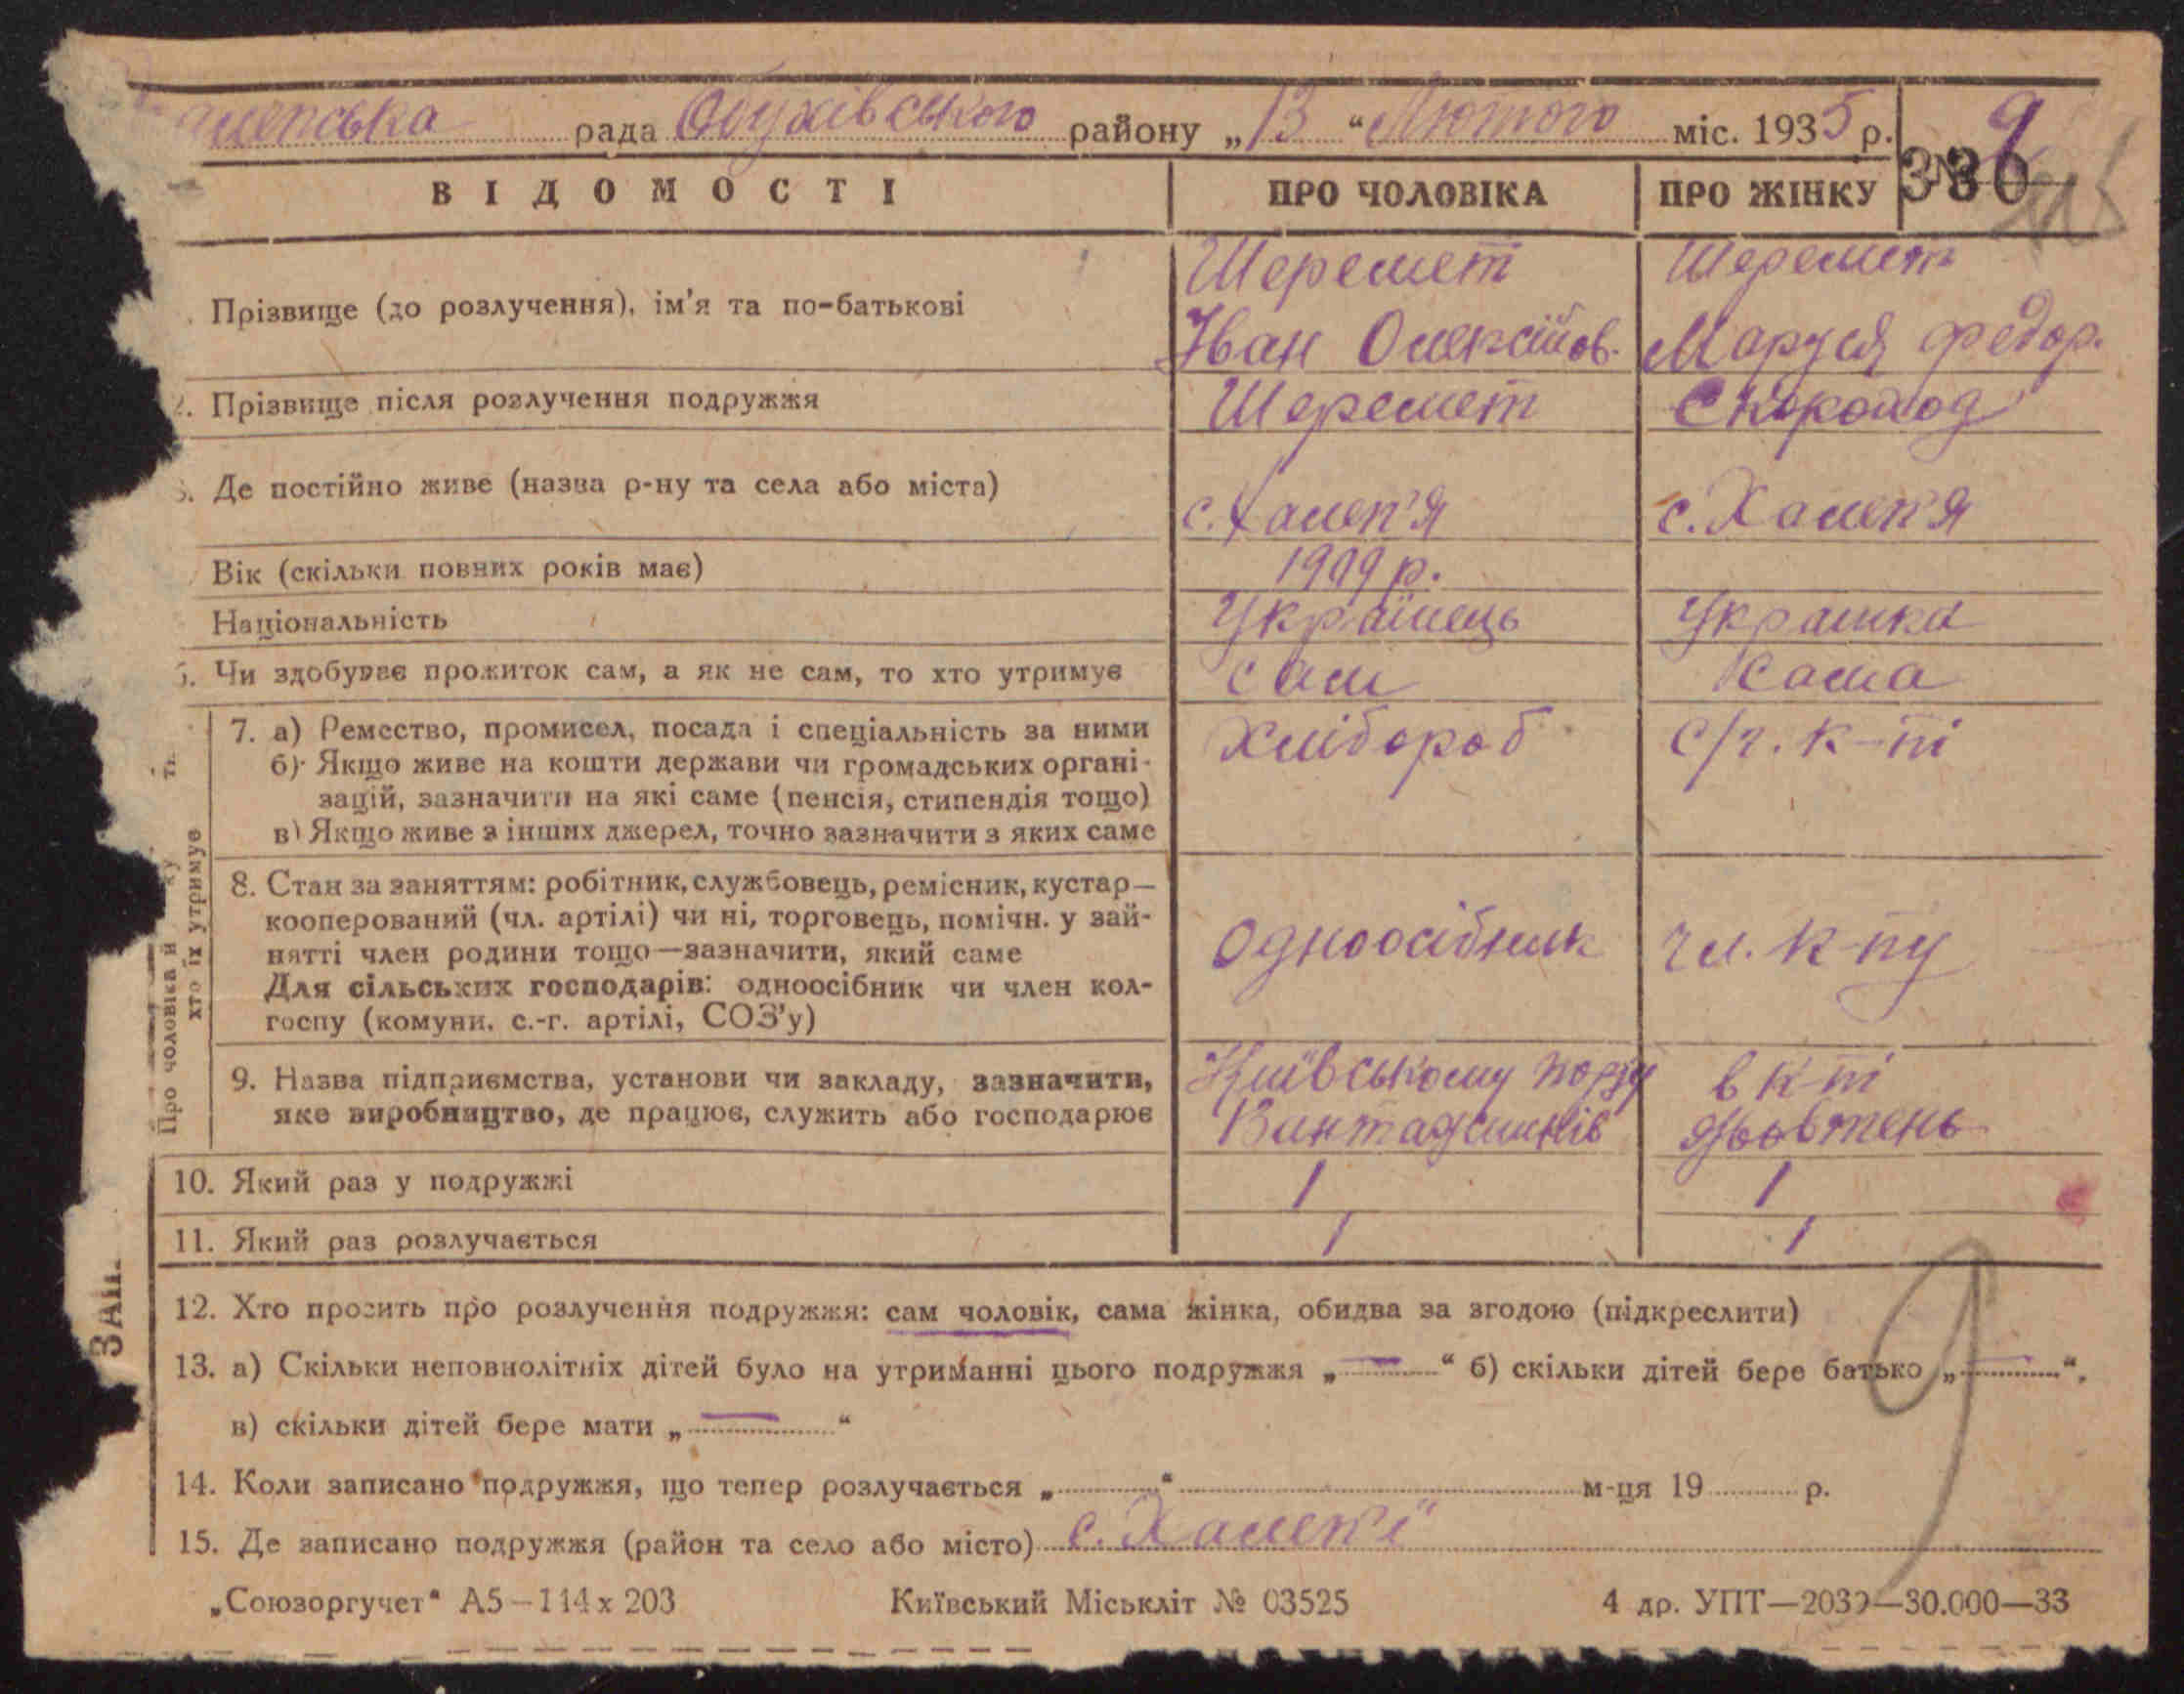 алепська рада Обухівського району „13“ Лютого міс. 1935 р. 9
330
ВІДОМОСТІ ПРО ЧОЛОВІКА ПРО ЖІНКУ
Прізвище (до розлучення), ім'я та по-батькові
Шеремет Шеремет
Іван Олексійов. Маруся Федор.
2. Прізвище після розлучення подружжя Шеремет Скороход
3. Де постійно живе (назва р-ну та села або міста) с. Халеп'я с. Халеп'я
Вік (скільки повних років має) 1909 р.
Національність Українець Українка
6. Чи здобуває прожиток сам, а як не сам, то хто утримує сам сама
Про чоловіка й
хто їх утримує
7. а) Ремество, промисел, посада і спеціальність за ними Хлібороб с/г. к-ті
б) Якщо живе на кошти держави чи громадських органі-
зацій, зазначити на які саме (пенсія, стипендія тощо)
в) Якщо живе з інших джерел, точно зазначити з яких саме
8. Стан за заняттям: робітник, службовець, ремісник, кустар—
кооперований (чл. артілі) чи ні, торговець, помічн. у зай-
нятті член родини тощо—зазначити, який саме Одноосібник чл. к-пу
Для сільських господарів: одноосібник чи член кол-
госпу (комуни, с.-г. артілі, СОЗ'у)
9. Назва підприємства, установи чи закладу, зазначити, Київському порту в к-ті
яке виробництво, де працює, служить або господарює Вантажників Жовтень
10. Який раз у подружжі 1 1
11. Який раз розлучається 1 1
ЗАП.
12. Хто просить про розлучення подружжя: сам чоловік, сама жінка, обидва за згодою (підкреслити)
13. а) Скільки неповнолітніх дітей було на утриманні цього подружжя „—“ б) скільки дітей бере батько „—“,
в) скільки дітей бере мати „—“
14. Коли записано подружжя, що тепер розлучається „ “ м-ця 19 р.
15. Де записано подружжя (район та село або місто) с. Халеп'ї
9
„Союзоргучет“ А5—114х203 Київський Міськліт № 03525 4 др. УПТ—2039—30.000—33